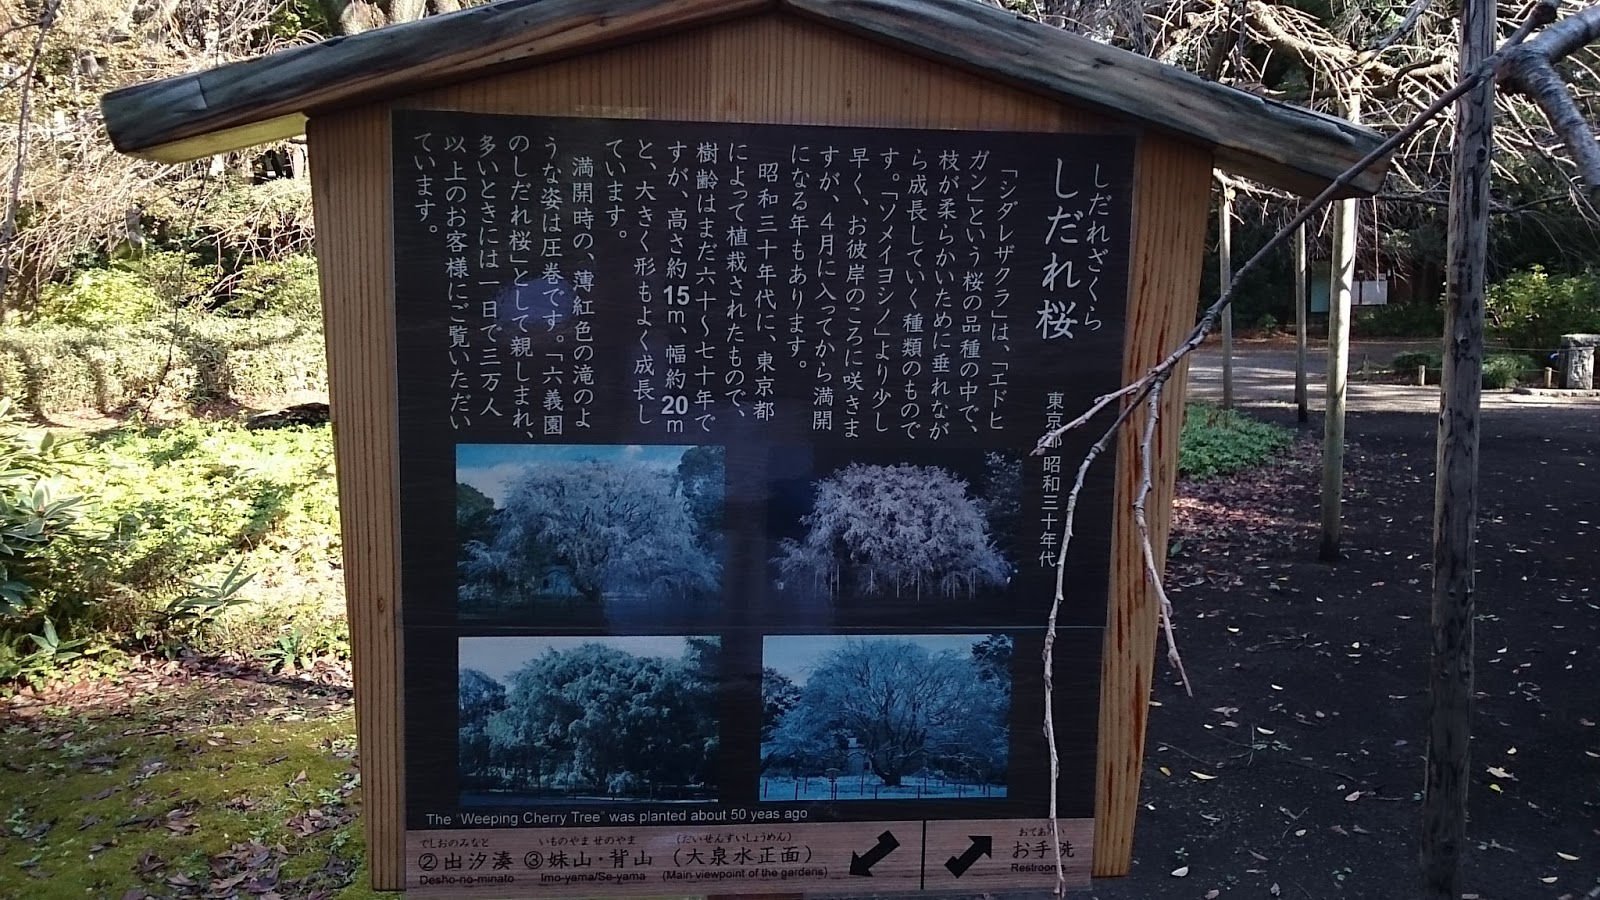 しだれざくら
しだれ桜
東京都 昭和三十年代
「シダレザクラ」は、「エドヒ
ガン」という桜の品種の中で、
枝が柔らかいために垂れなが
ら成長していく種類のもので
す。「ソメイヨシノ」より少し
早く、お彼岸のころに咲きま
すが、4月に入ってから満開
になる年もあります。
昭和三十年代に、東京都
によって植栽されたもので、
樹齢はまだ六十～七十年で
すが、高さ約15m、幅約20m
と、大きく形もよく成長し
ています。
満開時の、薄紅色の滝のよ
うな姿は圧巻です。「六義園
のしだれ桜」として親しまれ、
多いときには一日で三万人
以上のお客様にご覧いただい
ています。
The "Weeping Cherry Tree" was planted about 50 yeas ago
でしおのみなと
②出汐湊
Desho-no-minato
いものやま せのやま
③妹山・背山
Imo-yama/Se-yama
(だいせんすいしょうめん)
(大泉水正面)
(Main viewpoint of the gardens)
おてあらい
お手洗
Restrooms